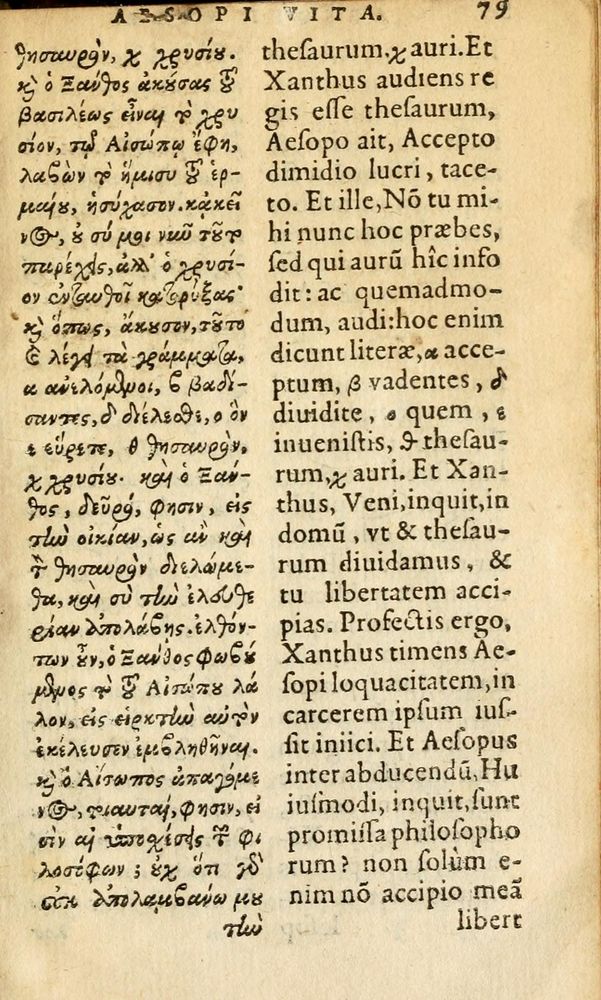 AESOPI VITA. 79
θησαυρὸν, χ χρυσίου.
κὶ ὁ Ξάνθος ἀκούσας τοῦ
βασιλέως εἶναι τὸ χρυ
σίον, τῷ Αἰσώπῳ ἔφη,
λαβὼν τὸ ἥμισυ τοῦ ἑρ-
μαίου, ἡσύχασον. κἀκεῖ
νος, οὐ σύ μοι νῦν τοῦτο
παρέχεις, ἀλλ' ὁ χρυσί-
ον ἐνταυθοῖ κατορύξας·
κὶ ὅπως, ἄκουσον, τοῦτο
λέγει τὰ γράμματα,
α ἀνελόμενοι, β βαδί-
σαντες, δ διέλεσθε, ο ὃν
ε εὕρετε, θ θησαυρὸν,
χ χρυσίου. καὶ ὁ Ξάν-
θος, δεῦρο, φησὶν, εἰς
τὴν οἰκίαν, ὡς ἂν καὶ
τὸν θησαυρὸν διελώμε-
θα, καὶ σὺ τὴν ἐλευθε
ρίαν ἀπολάβῃς. ἐλθόν-
των οὖν, ὁ Ξάνθος φοβού
μενος τὸ τοῦ Αἰσώπου λά
λον, εἰς εἱρκτὴν αὐτὸν
ἐκέλευσεν ἐμβληθῆναι.
κὶ ὁ Αἴσωπος ἀπαγόμε
νος, τοιαῦται, φησὶν, εἰ
σὶν αἱ ὑποσχέσεις τῶν φι
λοσόφων; οὐχ ὅτι γὰρ
οὐκ ἀπολαμβάνω μου
τὴν
theſaurum, χ auri. Et
Xanthus audiens re
gis eſſe theſaurum,
Aeſopo ait, Accepto
dimidio lucri, tace-
to. Et ille, Nõ tu mi-
hi nunc hoc præbes,
ſed qui aurũ hîc info
dit: ac quemadmo-
dum, audi: hoc enim
dicunt literæ, α acce-
ptum, β vadentes, δ
diuidite, ο quem, ε
inueniſtis, θ theſau-
rum, χ auri. Et Xan-
thus, Veni, inquit, in
domũ, vt & theſau-
rum diuidamus, &
tu libertatem acci-
pias. Profectis ergo,
Xanthus timens Ae-
ſopi loquacitatem, in
carcerem ipſum iuſ-
ſit iniici. Et Aeſopus
inter abducendũ, Hu
iuſmodi, inquit, ſunt
promiſſa philoſopho
rum? non ſolùm e-
nim nõ accipio meã
libert